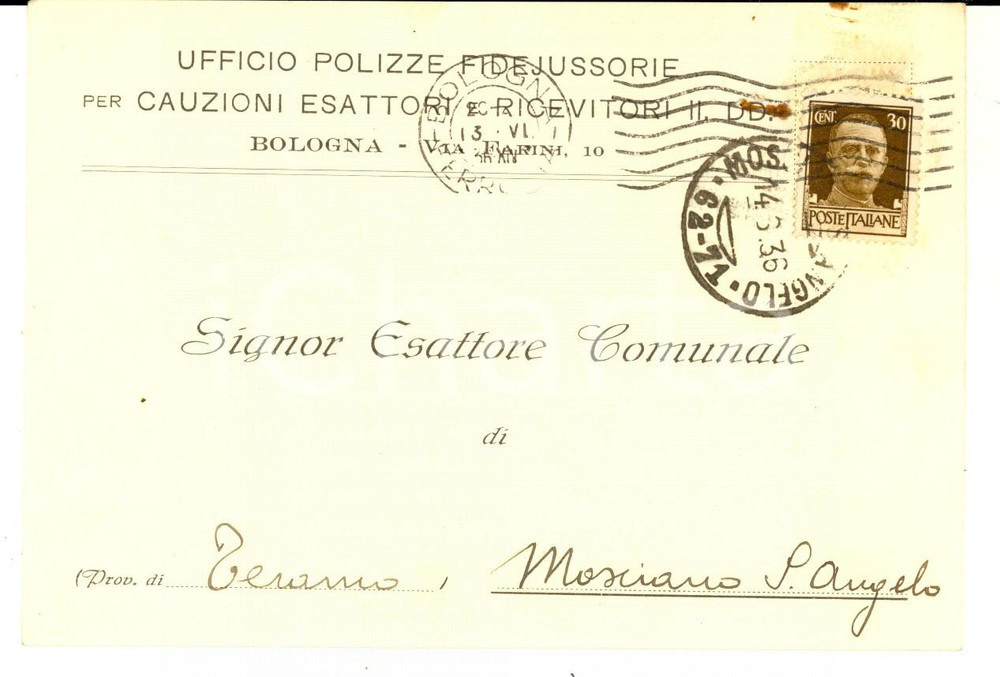 UFFICIO POLIZZE FIDEJUSSORIE
PER CAUZIONI ESATTORI E RICEVITORI II. DD.
BOLOGNA - VIA FARINI, 10
BOLOGNA
13 VI
36 XIV
CENT. 30
POSTE ITALIANE
MOS S. ANGELO
14.6.36
62-71
Signor Esattore Comunale
di
(Prov. di Teramo)
Mosciano S. Angelo
iCharta